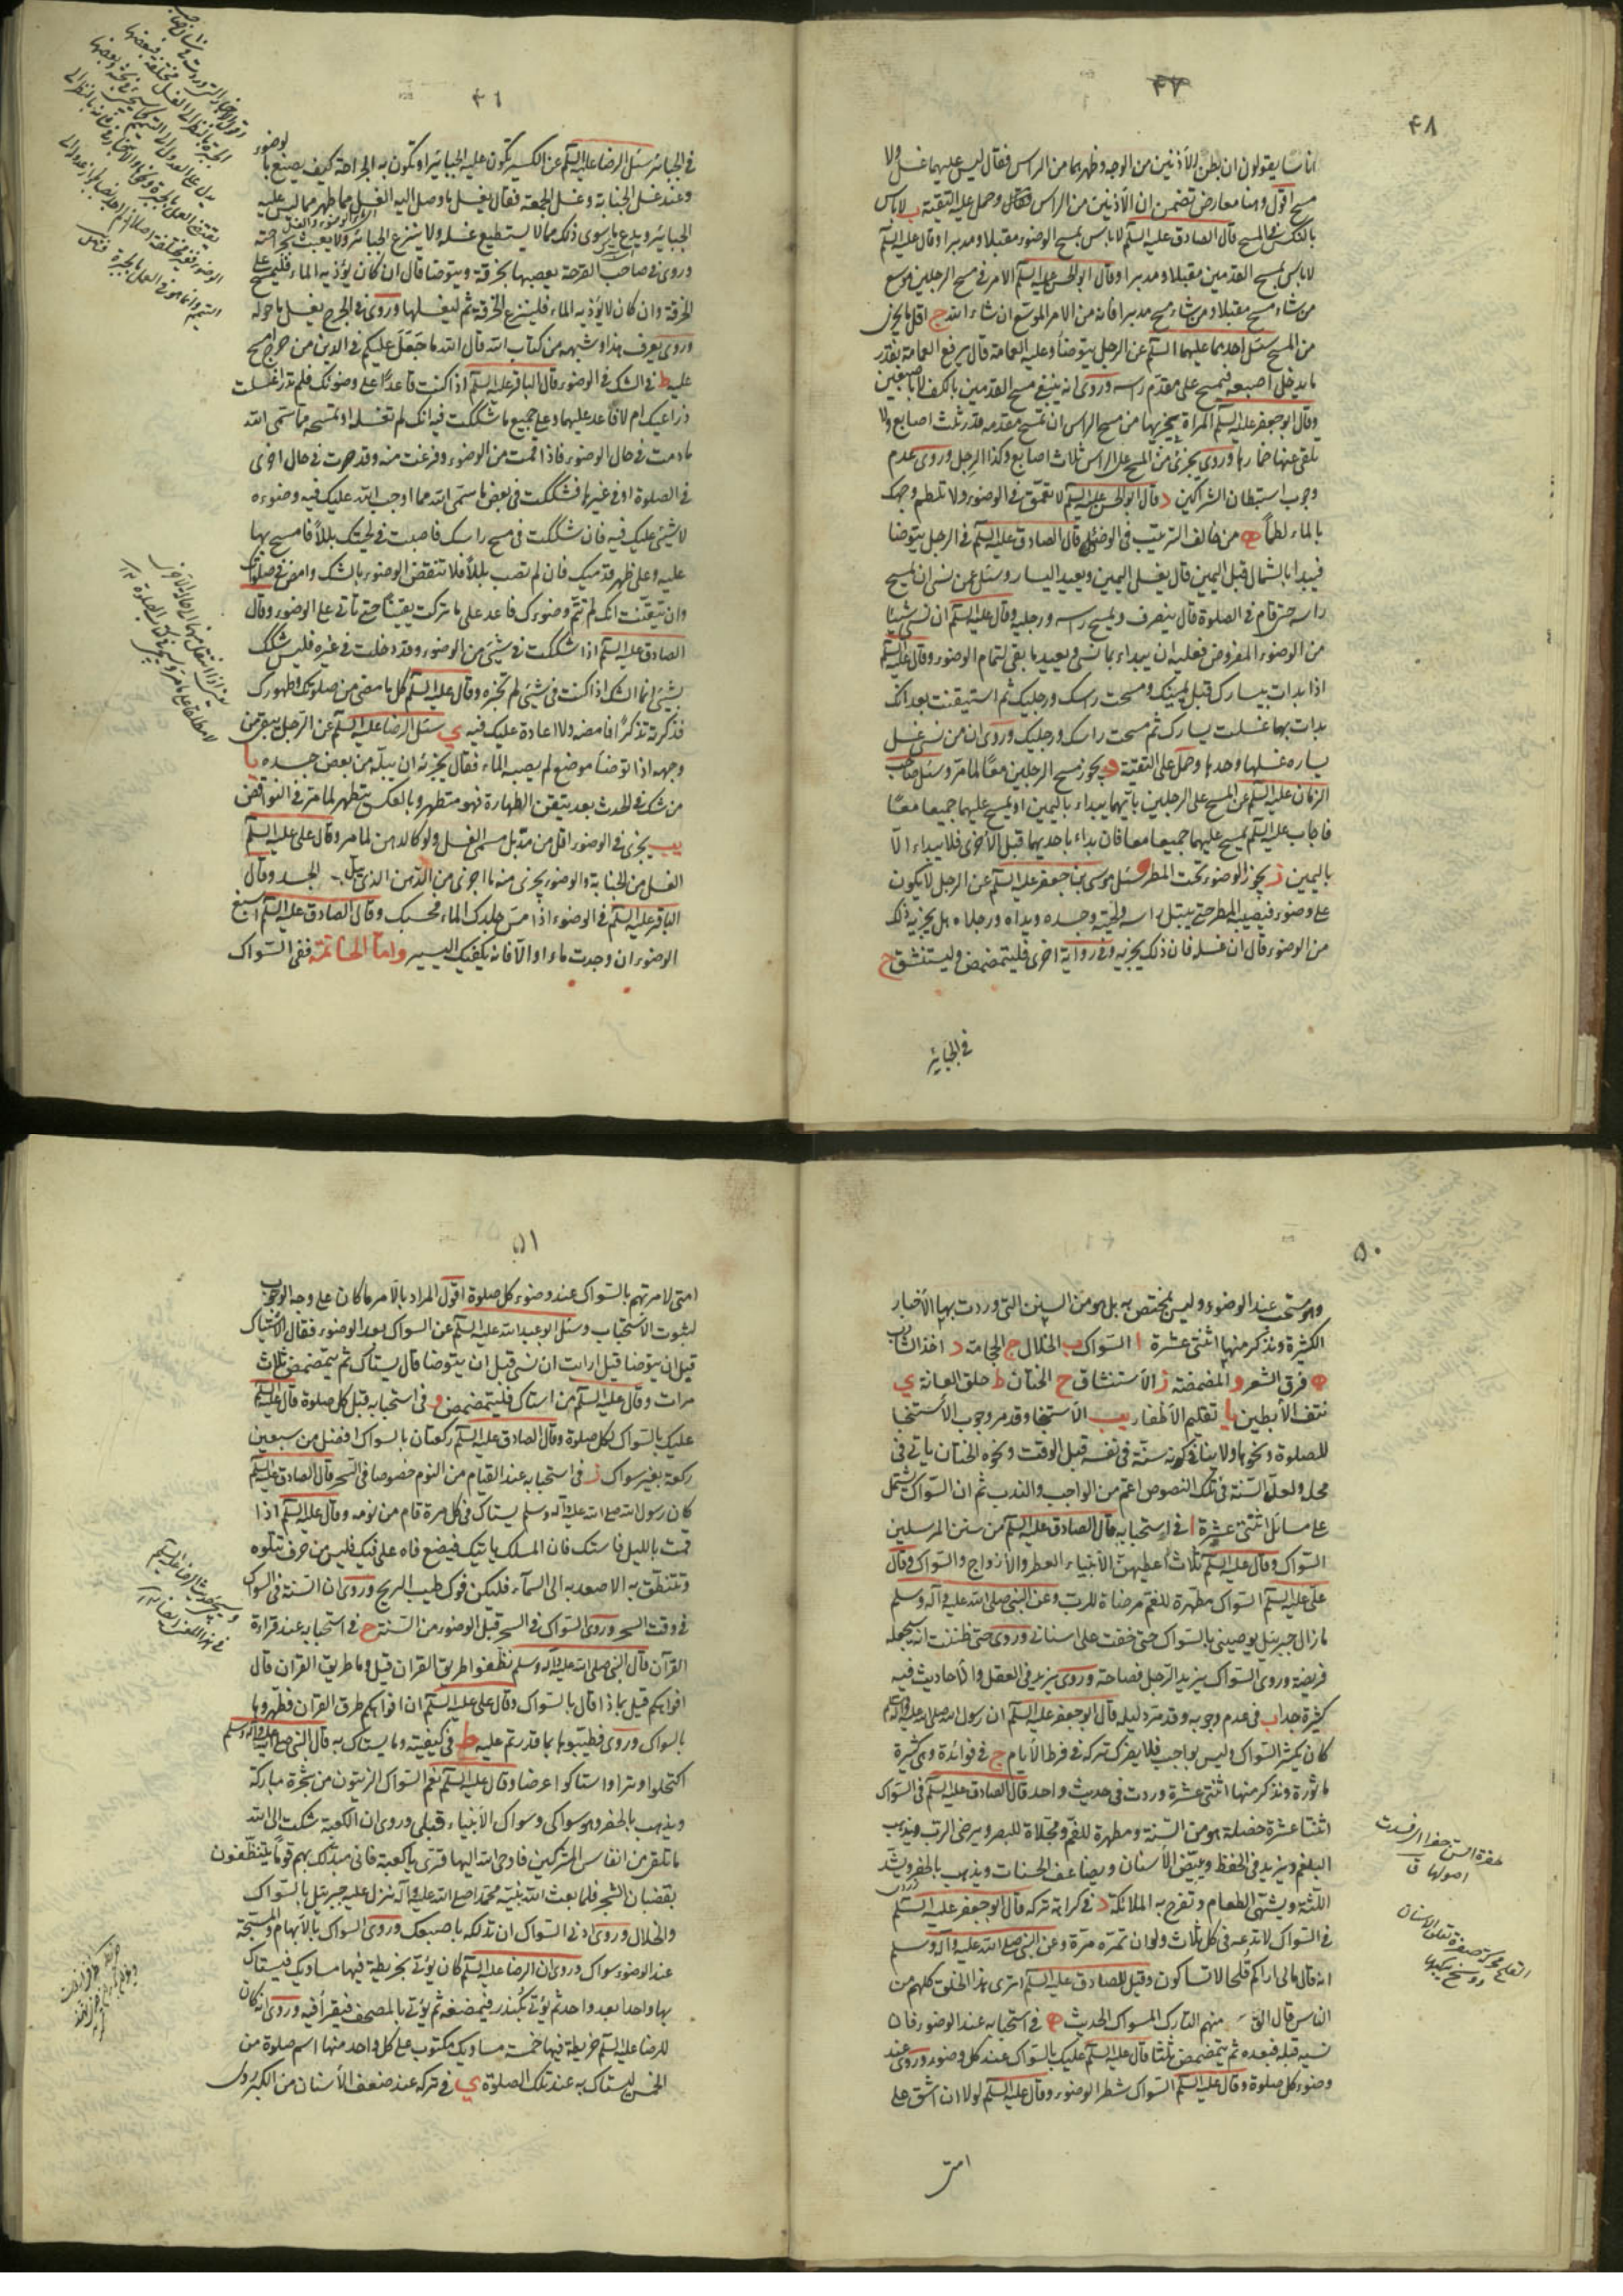 ٤٧
٤٨
اناسا يقولون ان بطن الأذنين من الوجه وظهرهما من الراس فقال ليس عليهما غسل ولا
مسح اقول وهنا معارض تضمن ان الأذنين من الراس وحمل على التقية ب لا باس
بالنكس في المسح قال الصادق عليه السلم لا باس بمسح الوضوء مقبلا ومدبرا وقال عليه السلم
لا باس بمسح القدمين مقبلا ومدبرا وقال ابو الحسن عليه السلم الامر في مسح الرجلين موسع
من شاء مسح مقبلا ومن شاء مسح مدبرا فانه من الامر الموسع ان شاء الله ج اقل ما يجزى
من المسح سئل احدهما عليهما السلم عن الرجل يتوضأ وعليه العمامة قال يرفع العمامة بقدر
ما يدخل اصبعه فيمسح على مقدم راسه وروى انه ينبغى مسح القدمين بالكف لا باصبعين
وقال ابو جعفر عليه السلم المراة يجزيها من مسح الراس ان تمسح مقدمه قدر ثلث اصابع ولا
تلقى عنها خمارها وروى يجزى من المسح على الراس ثلاث اصابع وكذا الرجل وروى عدم
وجوب استبطان الشراكين د وقال ابو الحسن عليه السلم لا تعمق في الوضوء ولا تلطم وجهك
بالماء لطماً ه من خالف الترتيب في الوضوء قال الصادق عليه السلم في الرجل يتوضا
فيبدا بالشمال قبل اليمين قال يغسل اليمين ويعيد اليسار وسئل عمن نسى ان يمسح
راسه حتى قام في الصلوة قال ينصرف ويمسح راسه ورجليه وقال عليه السلم ان نسى شيئا
من الوضوء المفروض فعليه ان يبداء بما نسى ويعيد ما بقى لتمام الوضوء وقال عليه السلم
اذا بدات بيسارك قبل يمينك ومسحت راسك ورجليك ثم استيقنت بعد انك
بدات بها غسلت يسارك ثم مسحت راسك ورجليك وروى ان من نسى غسل
يساره غسلها وحدها وحمل على التقية و يجوز مسح الرجلين معًا لما مر وسئل صاحب
الزمان عليه السلم عن المسح على الرجلين بأيهما يبداء باليمين او يمسح عليهما جميعا معًا
فاجاب عليه السلم يمسح عليهما جميعا معا فان بداء باحديهما قبل الأخرى فلا يبداء الا
باليمين ز يجوز الوضوء تحت المطر وسئل موسى بن جعفر عليه السلم عن الرجل لا يكون
على وضوء فيصيبه المطر حتى يبتل راسه ولحيته وجسده ويداه ورجلاه هل يجزيه ذلك
من الوضوء قال ان غسله فان ذلك يجزيه وفي رواية اخرى فليتمضمض وليستنشق ح
في الجبائر
٤٩
في الجبائر سئل الرضا عليه السلم عن الكسير تكون عليه الجبائر او تكون به الجراحة كيف يصنع بالوضوء
وعند غسل الجنابة وغسل الجمعة فقال يغسل ما وصل اليه الغسل مما ظهر مما ليس عليه
الجبائر ويدع ما سوى ذلك مما لا يستطيع غسله ولا ينزع الجبائر ولا يعبث بجراحته
وروى في صاحب القرحة يعصبها بخرقة ويتوضا قال ان كان يؤذيه الماء فليمسح على
الخرقة وان كان لا يؤذيه الماء فلينزع الخرقة ثم ليغسلها وروى في الجرح يغسل ما حوله
وروى يعرف هذا وشبهه من كتاب الله قال الله ما جَعَلَ عليكم في الدين من حرج امسح
عليه ط في الشك في الوضوء قال الباقر عليه السلم اذا كنت قاعداً على وضوئك فلم تدر اغسلت
ذراعيك ام لا فاعد عليهما وعلى جميع ما شككت فيه انك لم تغسله او تمسحه مما سمى الله
ما دمت في حال الوضوء فاذا قمت من الوضوء وفرغت منه وقد صرت في حال اخرى
في الصلوة او في غيرها فشككت في بعض ما سمى الله مما اوجب الله عليك فيه وضوءه
لا شيئ عليك فيه فان شككت في مسح راسك فاصبت في لحيتك بللاً فامسح بها
عليه وعلى ظهر قدميك فان لم تصب بللاً فلا تنقض الوضوء بالشك وامض في صلوتك
وان تيقّنت انك لم تتم وضوءك فاعد على ما تركت يقيناً حتى تاتي على الوضوء وقال
الصادق عليه السلم اذا شككت في شيئ من الوضوء وقد دخلت في غيره فليس شكك
بشيئ انما الشك اذا كنت في شيئ لم تجزه وقال عليه السلم كل ما مضى من صلوتك وطهورك
فذكرته تذكراً فامضه ولا اعادة عليك فيه ي سئل الرضا عليه السلم عن الرجل يبقى من
وجهه اذا توضأ موضع لم يصبه الماء فقال يجزئه ان يبله من بعض جسده يا
من شك في الحدث بعد يتقن الطهارة فهو متطهر وبالعكس يتطهر لما مر في النواقض
يب يجزى في الوضوء اقل من مد بل مسمى الغسل ولو كالدهن لما مر وقال على عليه السلم
الغسل من الجنابة والوضوء يجزى منه ما اجزى من الدهن الذي يبل الجسد وقال
الباقر عليه السلم في الوضوء اذا مس جلدك الماء فحسبك وقال الصادق عليه السلم اسبغ
الوضوء ان وجدت ماء والا فانه يكفيك اليسير واما الخاتمة ففى السواك
٥٠
وهو مستحب عند الوضوء وليس بمختص به بل هو من السنن التي وردت بها الأخبار
الكثيرة ونذكر منها اثنتى عشرة ا السواك ب الخلال ج الحجامة د اخذ الشارب
ه فرق الشعر و المضمضة ز الأستنشاق ح الختان ط حلق العانة ي
نتف الأبطين يا تقليم الأظفار يب الأستنجا وقد مر وجوب الأستنجا
للصلوة ونحوها ولا ينافي كونه سنة في نفسه قبل الوقت ونحوه الختان ياتي في
محله ولعل السنة في تلك النصوص اعم من الواجب والندب ثم ان السواك يشتمل
على مسائل اثنتى عشرة ا في استحبابه قال الصادق عليه السلم من سنن المرسلين
السواك وقال عليه السلم ثلاث اُعطيهن الأنبياء العطر والأزواج والسواك وقال
على عليه السلم السواك مطهرة للفم مرضاة للرب وعن النبي صلى الله عليه وآله وسلم
ما زال جبرئيل يوصينى بالسواك حتى خفت على اسناني وروى حتى ظننت انه سيجعله
فريضة وروى السواك يزيد الرجل فصاحة وروى يزيد في العقل والأحاديث فيه
كثيرة جدا ب في عدم وجوبه وقد مر دليله قال ابو جعفر عليه السلم ان رسول الله صلى الله عليه وآله وسلم
كان يكثر السواك وليس بواجب فلا يضرك تركه في فرط الأيام ج في فوائده وهى كثيرة
ماثورة ونذكر منها اثنتى عشرة وردت في حديث واحد قال الصادق عليه السلم في السواك
اثنتا عشرة خصلة هو من السنة ومطهرة للفم ومجلاة للبصر ويرضى الرب ويذهب
البلغم ويزيد في الحفظ ويبيّض الأسنان ويضاعف الحسنات ويذهب بالحفر ويشد
اللثة ويشهى الطعام وتفرح به الملائكة د في كراهة تركه قال ابو جعفر عليه السلم
في السواك لا تدعه في كل ثلاث ولو ان تمره مرة وعن النبي صلى الله عليه وآله وسلم
انه قال مالي اراكم قلحا لا تساكون وقيل للصادق عليه السلم اترى هذا الخلق كلهم من
الناس قال الق منهم التارك السواك الحديث ه في استحبابه عند الوضوء فان
نسيه قبله فبعده ثم يتمضمض ثلثا قال عليه السلم عليك بالسواك عند كل وضوء وروى عند
وضوء كل صلوة وقال عليه السلم السواك شطر الوضوء وقال عليه السلم لولا ان اشق على
امتى
٥١
امتى لامرتهم بالسواك عند وضوء كل صلوة اقول المراد بالأمر ما كان على وجه الوجوب
لثبوت الأستحباب وسئل ابو عبد الله عليه السلم عن السواك بعد الوضوء فقال الأستياك
قبل ان يتوضا قيل ارايت ان نسى قبل ان يتوضا قال يستاك ثم يتمضمض ثلاث
مرات وقال عليه السلم من استاك فليتمضمض و في استحبابه قبل كل صلوة قال عليه السلم
عليك بالسواك لكل صلوة وقال الصادق عليه السلم ركعتان بالسواك افضل من سبعين
ركعة بغير سواك ز في استحبابه عند القيام من النوم خصوصا في السحر قال الصادق عليه السلم
كان رسول الله صلى الله عليه وآله وسلم يستاك في كل مرة قام من نومه وقال عليه السلم اذا
قمت بالليل فاستك فان الملك ياتيك فيضع فاه على فيك فليس من حرف تتلوه
وتنطق به الا صعد به الى السمآء فليكن فوك طيب الريح وروى ان السنة في السواك
في وقت السحر وروى السواك في السحر قبل الوضوء من السنة ح في استحبابه عند قراءة
القرآن قال النبي صلى الله عليه وآله وسلم نظفوا طريق القرآن قيل وما طريق القرآن قال
افواهكم قيل بماذا قال بالسواك وقال على عليه السلم ان افواهكم طرق القرآن فطهروها
بالسواك وروى فطيّبوها بما قدرتم عليه ط في كيفيته وما يستاك به قال النبي صلى الله عليه وآله وسلم
اكتحلوا وترا واستاكوا عرضا وقال عليه السلم نعم السواك الزيتون من شجرة مباركة
ويذهب بالحفر وهو سواكى وسواك الأنبياء قبلي وروى ان الكعبة شكت الى الله
ما تلقى من انفاس المشركين فاوحى الله اليها قرى يا كعبة فاني مبدلك بهم قوماً يتنظفون
بقضبان الشجر فلما بعث الله نبيه محمدا صلى الله عليه وآله نزل عليه جبرئيل بالسواك
والخلال وروى ادنى السواك ان تدلكه باصبعك وروى السواك بالأبهام والمسبّحة
عند الوضوء سواك وروى ان الرضا عليه السلم كان يؤتى بخريطة فيها مساويك فيستاك
بها واحدا بعد واحد ثم يؤتى بكُندر فيمضغه ثم يؤتى بالمصحف فيقرأ فيه وروى انه كان
للرضا عليه السلم خريطة فيها خمسة مساويك مكتوب على كل واحد منها اسم صلوة من
الخمس ليستاك به عند تلك الصلوة ي في تركه عند ضعف الأسنان من الكبر روى